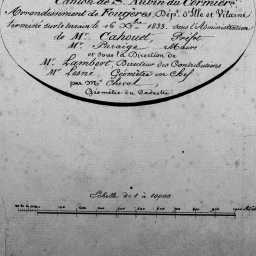 Canton de St Aubin du Cormier
Arrondissement de Fougères Dépt. d'Ille et Vilaine
Terminé sur le terrain le 16 Bre 1833, sous l'Administration
de Mr. Cahouet, Préfet
Mr. Maire
et sous la Direction de
Mr. Lambert, Directeur des Contributions
Mr Lesné Géomètre en Chef
par Mr
Géomètre du Cadastre
Echelle de 1 à 10000